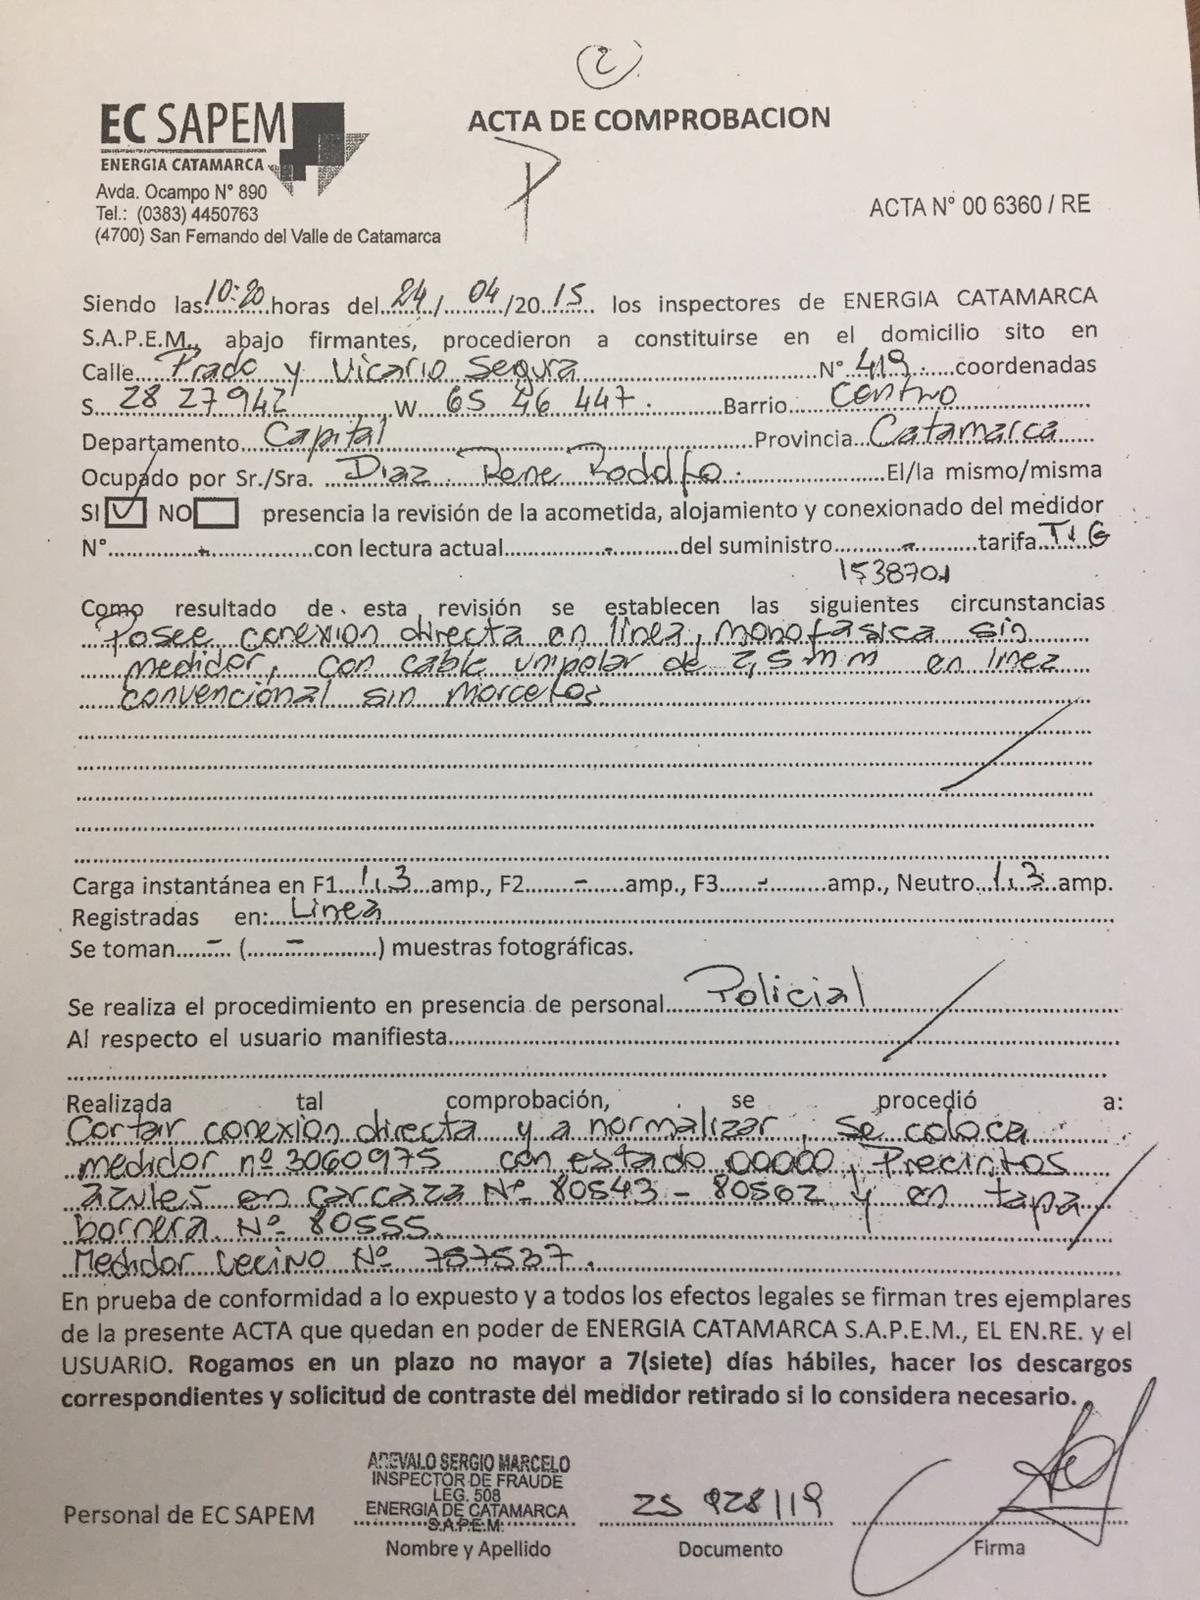 2
EC SAPEM
ENERGIA CATAMARCA
ACTA DE COMPROBACION
P
Avda. Ocampo N° 890
Tel.: (0383) 4450763
(4700) San Fernando del Valle de Catamarca
ACTA N° 00 6360 / RE
Siendo las 10:20 horas del 24/ 04 /20 15 los inspectores de ENERGIA CATAMARCA
S.A.P.E.M., abajo firmantes, procedieron a constituirse en el domicilio sito en
Calle Prado y Vicario Segura N° 419 coordenadas
S 28 27942 W 65 46 447. Barrio Centro
Departamento Capital Provincia Catamarca
Ocupado por Sr./Sra. Diaz Rene Rodolfo. El/la mismo/misma
SI ✓ NO presencia la revisión de la acometida, alojamiento y conexionado del medidor
N° - con lectura actual - del suministro - tarifa T1G
1538701
Como resultado de esta revisión se establecen las siguientes circunstancias
Posee conexion directa en linea, monofasica sin
medidor, con cable unipolar de 2,5 mm en linea
convencional sin morcetos
Carga instantánea en F1 1.3 amp., F2 - amp., F3 - amp., Neutro 1.3 amp.
Registradas en: Linea
Se toman - ( - ) muestras fotográficas.
Se realiza el procedimiento en presencia de personal Policial
Al respecto el usuario manifiesta
Realizada tal comprobación, se procedió a:
Cortar conexion directa y a normalizar, se coloca
medidor nº 3060975 con estado 00000, Precintos
azules en carcaza Nº 80543 - 80562 y en tapa
bornera Nº 80555.
Medidor Vecino Nº 757537.
En prueba de conformidad a lo expuesto y a todos los efectos legales se firman tres ejemplares
de la presente ACTA que quedan en poder de ENERGIA CATAMARCA S.A.P.E.M., EL EN.RE. y el
USUARIO. Rogamos en un plazo no mayor a 7(siete) días hábiles, hacer los descargos
correspondientes y solicitud de contraste del medidor retirado si lo considera necesario.
AREVALO SERGIO MARCELO
INSPECTOR DE FRAUDE
LEG. 508
ENERGIA DE CATAMARCA
S.A.P.E.M.
Personal de EC SAPEM 25 928119
Nombre y Apellido Documento Firma